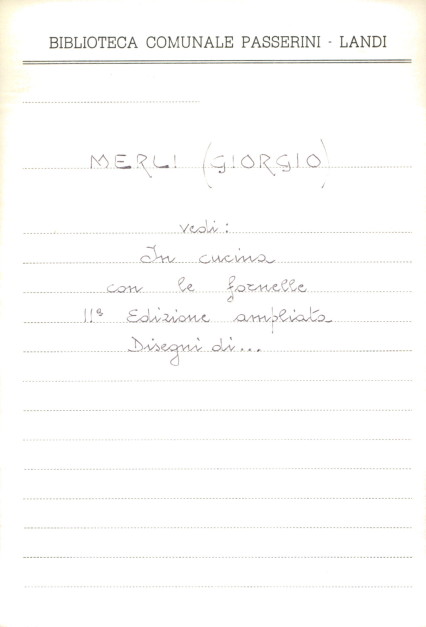 BIBLIOTECA COMUNALE PASSERINI - LANDI
MERLI (GIORGIO)
vedi:
In cucina
con le fornelle
IIª Edizione ampliata
Disegni di...